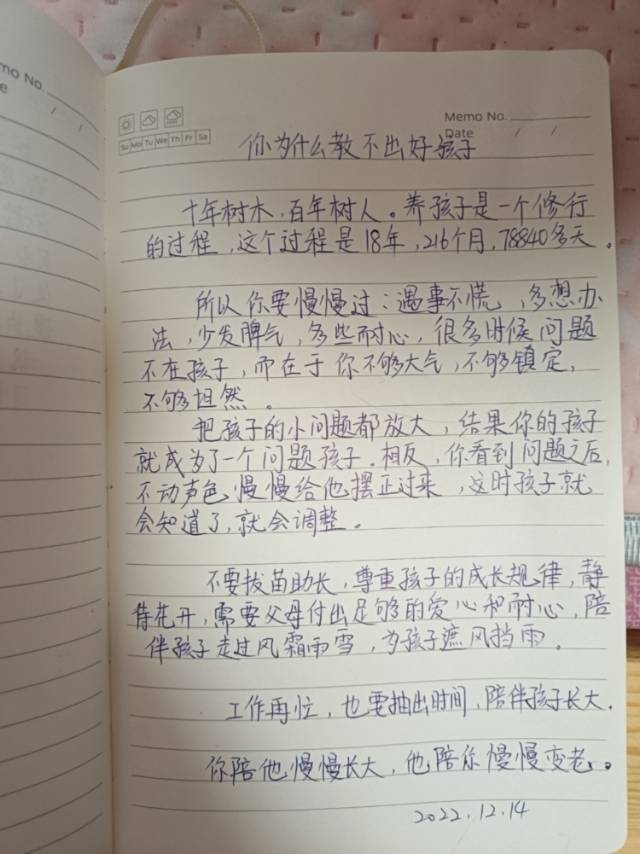 mo No.
e
Su Mo Tu We Th Fr Sa
Memo No.
Date / /
你为什么教不出好孩子
十年树木,百年树人。养孩子是一个修行
的过程,这个过程是18年,216个月,78840多天。
所以你要慢慢过:遇事不慌,多想办
法,少发脾气,多些耐心,很多时候问题
不在孩子,而在于你不够大气,不够镇定,
不够坦然。
把孩子的小问题都放大,结果你的孩子
就成为了一个问题孩子.相反,你看到问题之后,
不动声色慢慢给他摆正过来,这时孩子就
会知道了,就会调整。
不要拔苗助长,尊重孩子的成长规律,静
待花开,需要父母付出足够的爱心和耐心,陪
伴孩子走过风霜雨雪,为孩子遮风挡雨。
工作再忙,也要抽出时间,陪伴孩子长大.
你陪他慢慢长大,他陪你慢慢变老。
2022.12.14